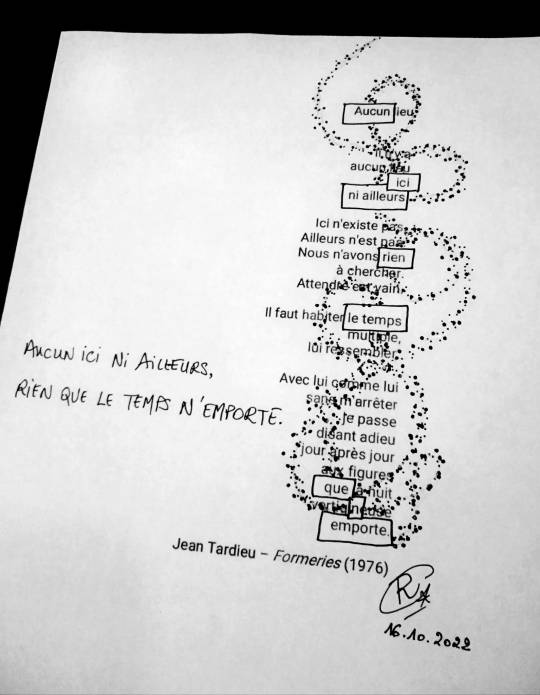 Aucun lieu
Il n'y a
aucun lieu
ici
ni ailleurs
Ici n'existe pas,
Ailleurs n'est pas
Nous n'avons rien
à chercher.
Attendre est vain,
Il faut habiter le temps
multiple,
lui ressembler.
Avec lui comme lui
sans m'arrêter
je passe
disant adieu
jour après jour
aux figures
que la nuit
vertigineuse
emporte.
Jean Tardieu – Formeries (1976)
AUCUN ICI NI AILLEURS,
RIEN QUE LE TEMPS N'EMPORTE.
R
16.10.2022